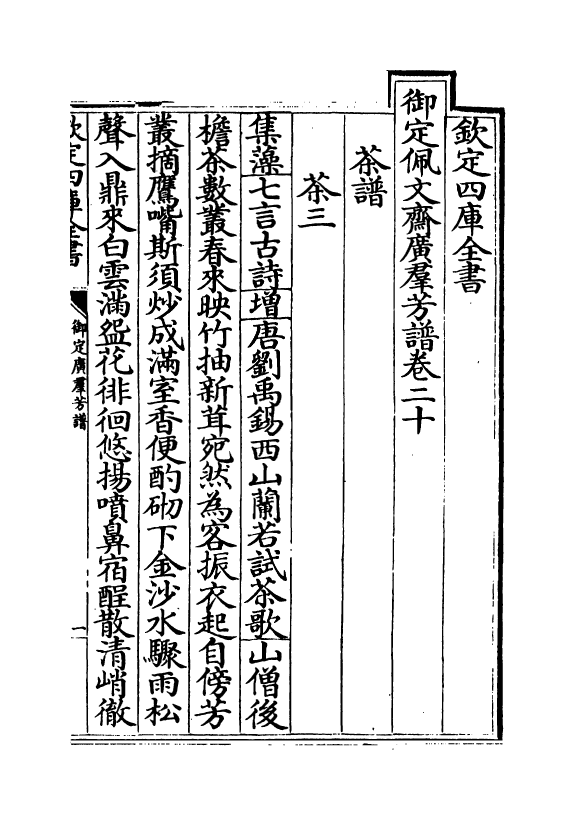 欽定四庫全書
御定佩文齋廣羣芳譜卷二十
茶譜
茶三
集藻七言古詩增唐劉禹錫西山蘭若試茶歌山僧後
檐茶數叢春來映竹抽新茸宛然為客振衣起自傍芳
叢摘鷹嘴斯須炒成滿室香便酌砌下金沙水驟雨松
聲入鼎來白雲滿盌花徘徊悠揚噴鼻宿酲散清峭徹
欽定四庫全書
御定廣羣芳譜
一